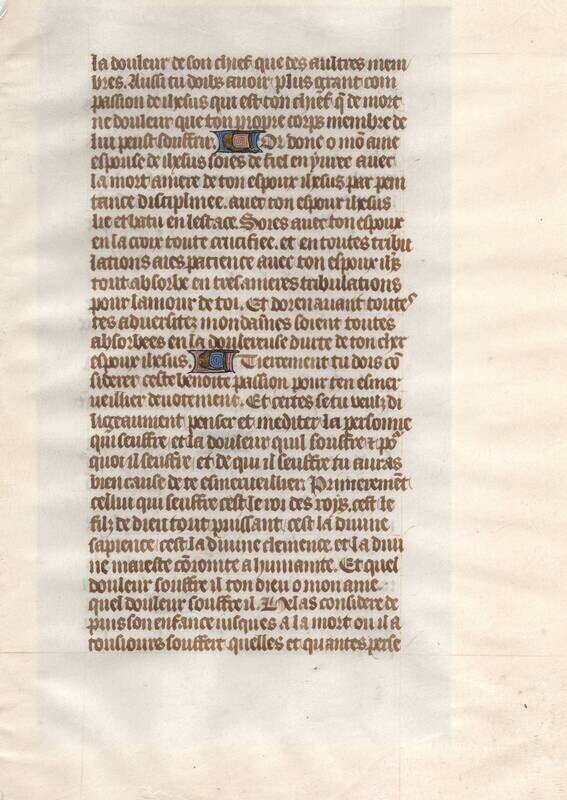 la douleur de son chief que des aultres mem
bres. Aussi tu doibs auoir plus grant com
passion de ihesus qui est ton chief q̄ de mort
ne douleur que ton propre corps membre de
lui peust souffrir. Or donc o mō ame
espouse de ihesus soies de fiel enyuree auec
la mort amere de ton espoux ihesus par peni
tance disciplinee. auec ton espoux ihesus
lie et batu en lestace. Soies auec ton espoux
en la croix toute crucifiee. et en toutes tribu
lations aies pacience auec ton espoux ihs
tout absorbe en tresameres tribulations
pour lamour de toi. Et dorenauant toutes
tes aduersitez mondaines soient toutes
absorbees en la douloreuse durte de ton chier
espoux ihesus. Tiercement tu dois cō
siderer ceste benoite passion pour ten esmer
ueillier deuotement. Et certes se tu veulz di
ligeaument penser et mediter la personne
qui seuffre et la douleur quil souffre ⁊ po᷑
quoi il seuffre et de qui il seuffre tu auras
bien cause de te esmerueillier. Primeremēt
cellui qui seuffre cest le roi des rois, cest le
filz de dieu tout puissant, cest la diuine
sapience, cest la diuine clemence. et la diui
ne maieste cōiointe a humanite. Et quel
douleur souffre il ton dieu o mon ame.
quel douleur souffre il. Helas considere de
puis son enfance iusques a la mort ou il a
tousiours souffert quelles et quantes perse